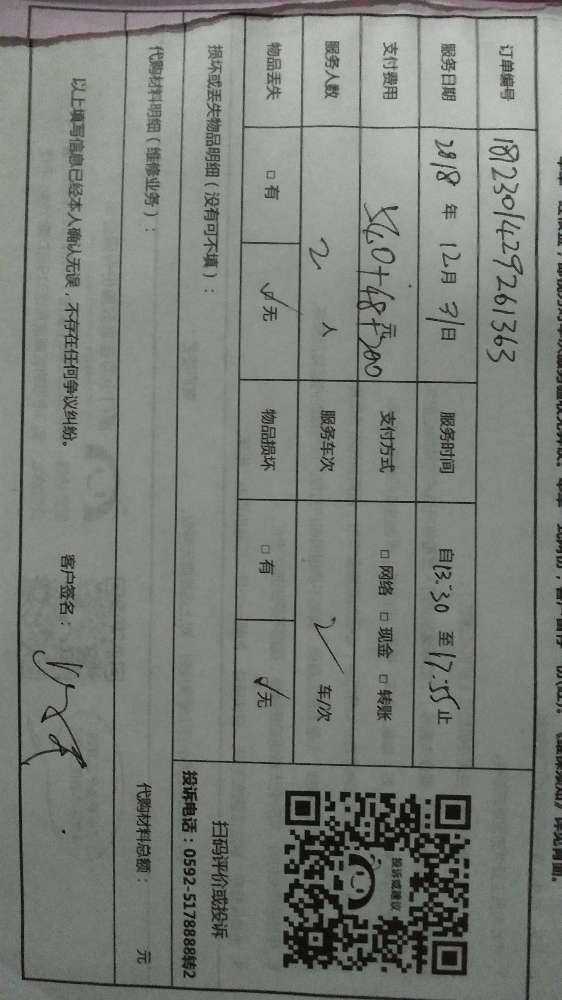 订单编号 1812301429261363
服务日期 2018 年 12 月 31 日 服务时间 自 13:30 至 17:55 止
支付费用 540+48+200 元 支付方式 □ 网络 □ 现金 □ 转账
服务人数 2 人 服务车次 2 车/次
物品丢失 □ 有 ☑ 无 物品损坏 □ 有 ☑ 无
损坏或丢失物品明细(没有可不填):
扫码评价或投诉
投诉电话:0592-5178888转2
投诉或建议
代购材料明细(维修业务): 代购材料总额: 元
以上填写信息已经本人确认无误,不存在任何争议纠纷。 客户签名: